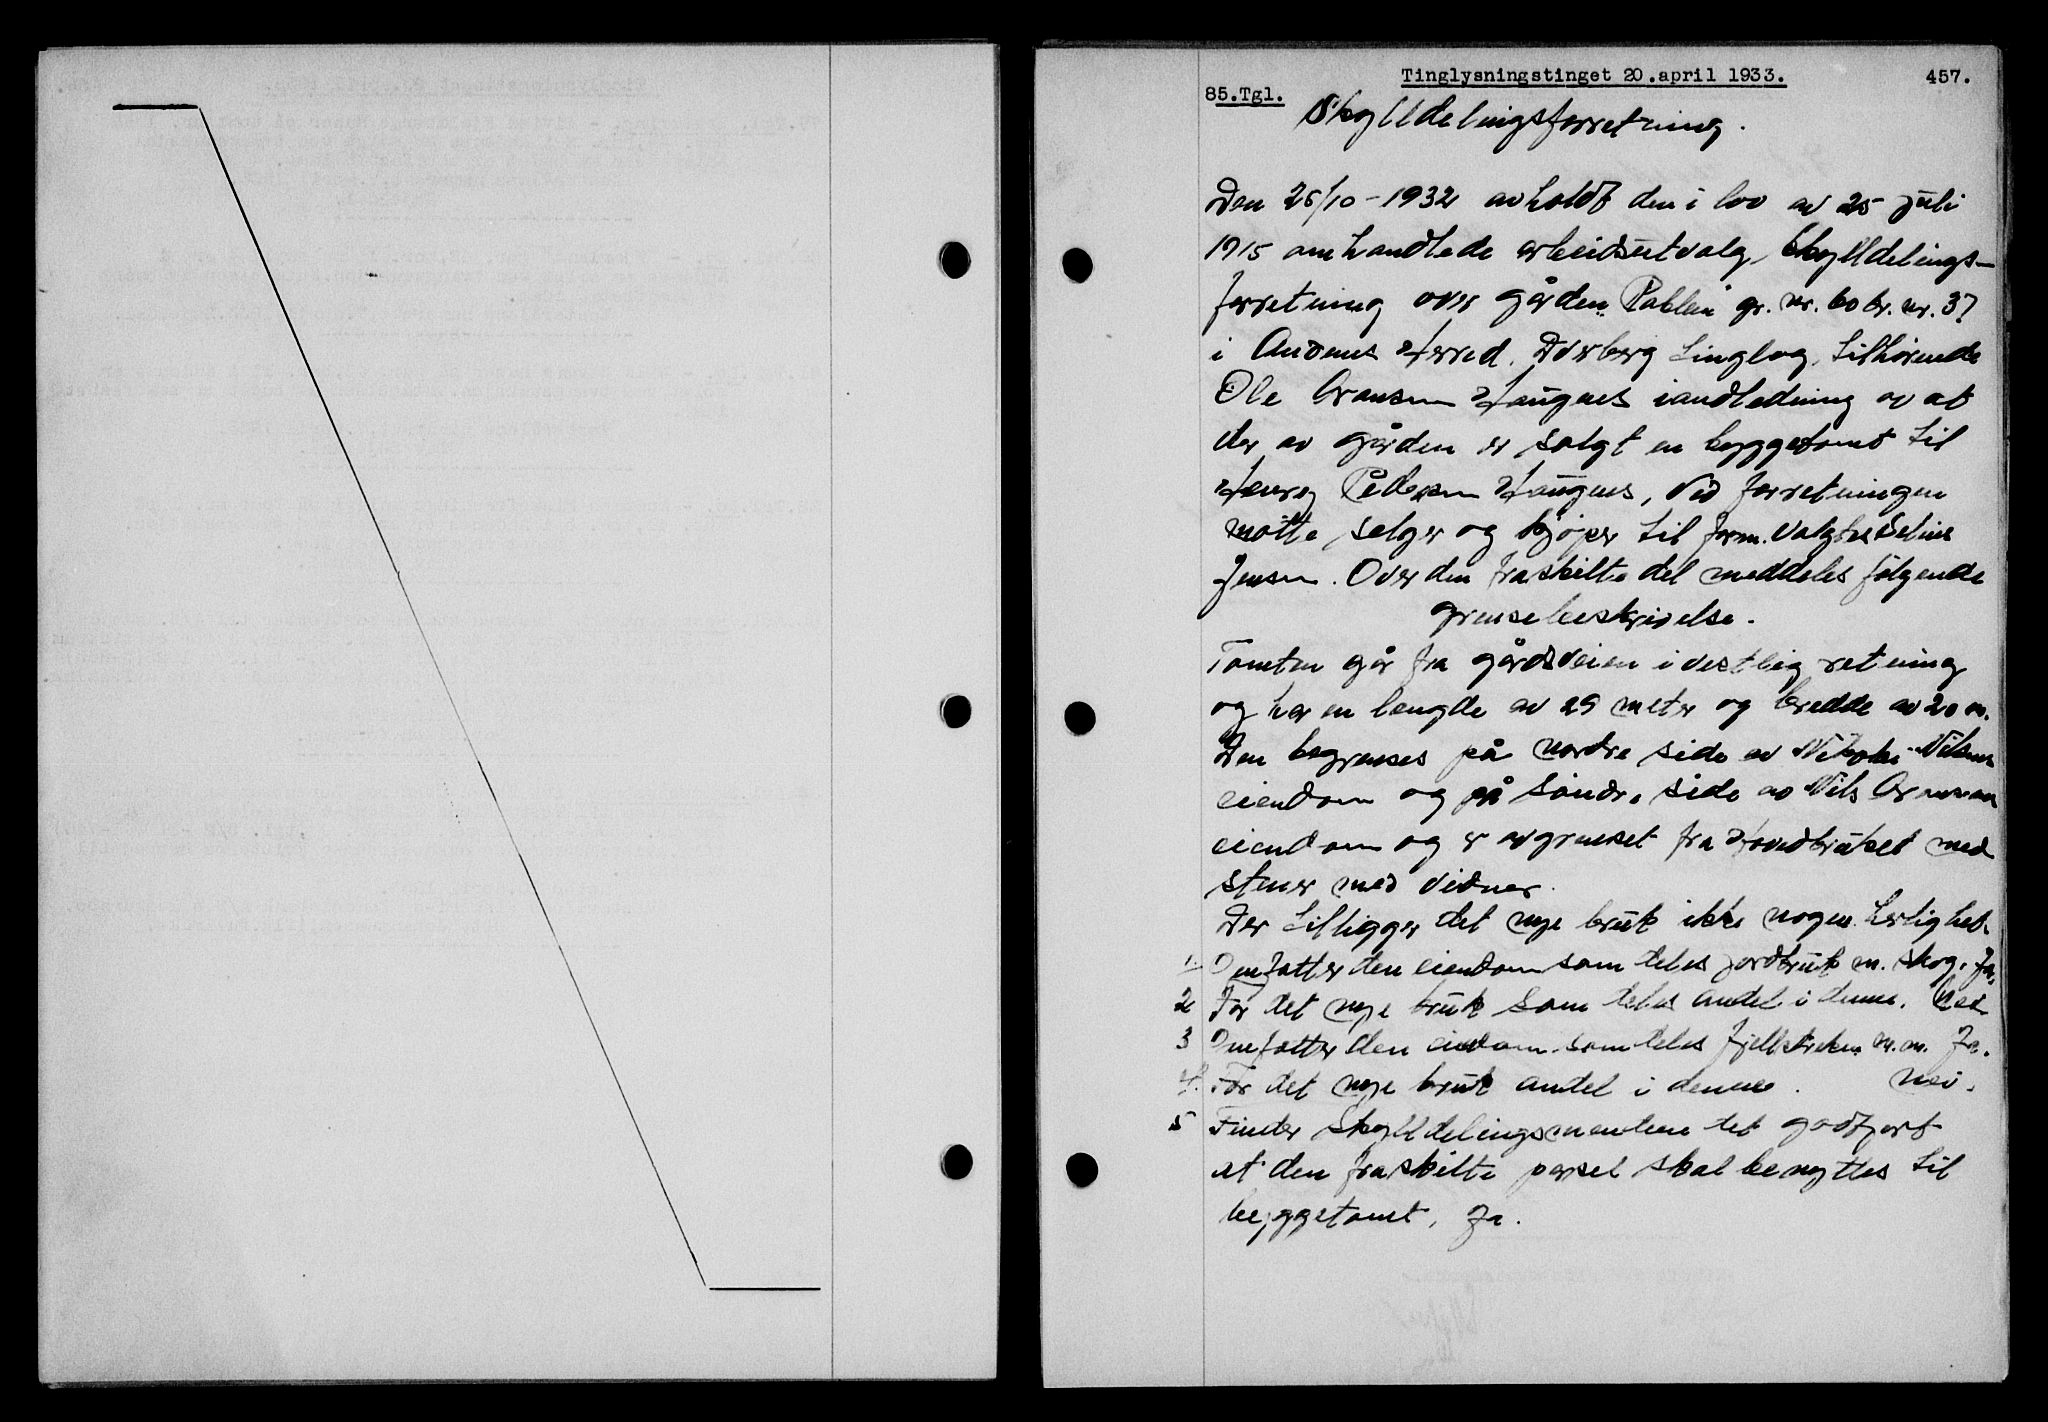 Tinglysningstinget 20.april 1933.
457.
85.Tgl.
Skylldelingsforretning.
Den 26/10-1932 avholdt den i lov av 25 juli
1915 omhandlede arbeidsutvalg, Skylldelings-
forretning over gården gr. nr. 60 br. nr. 37
i Andenes Herred, Dverberg tinglag, tilhørende
Ole Haugnes iandledning av at
der av gården er solgt en byggetomt til
Pedersen Haugnes, Ved forretningen
møtte selger og kjøper til form. valgtes
Jensen. Over den fraskilte del meddeles følgende
grensebeskrivelse.
Tomten går fra gårdsveien i vestlig retning
og har en længde av 29 meter og bredde av 20 m.
Den begrenses på nordre side av Nikolai Nilsens
eiendom og på søndre side av Nils
eiendom og er avgrenset fra Hovedbruket med
stener med vidner.
Der tilligger det nye bruk ikke nogen herlighet.
1. Omfatter den eiendom som deles jordbruk m. skog. Ja.
2 Får det nye bruk som deles andel i denne. Nei
3 Omfatter den eiedom som deles fjellstrekn. m.m. Ja.
4. Får det nye bruk andel i denne. nei.
5 Finder Skylldelingsmendene det godtjort
at den fraskilte parsel skal benyttes til
byggetomt, Ja.